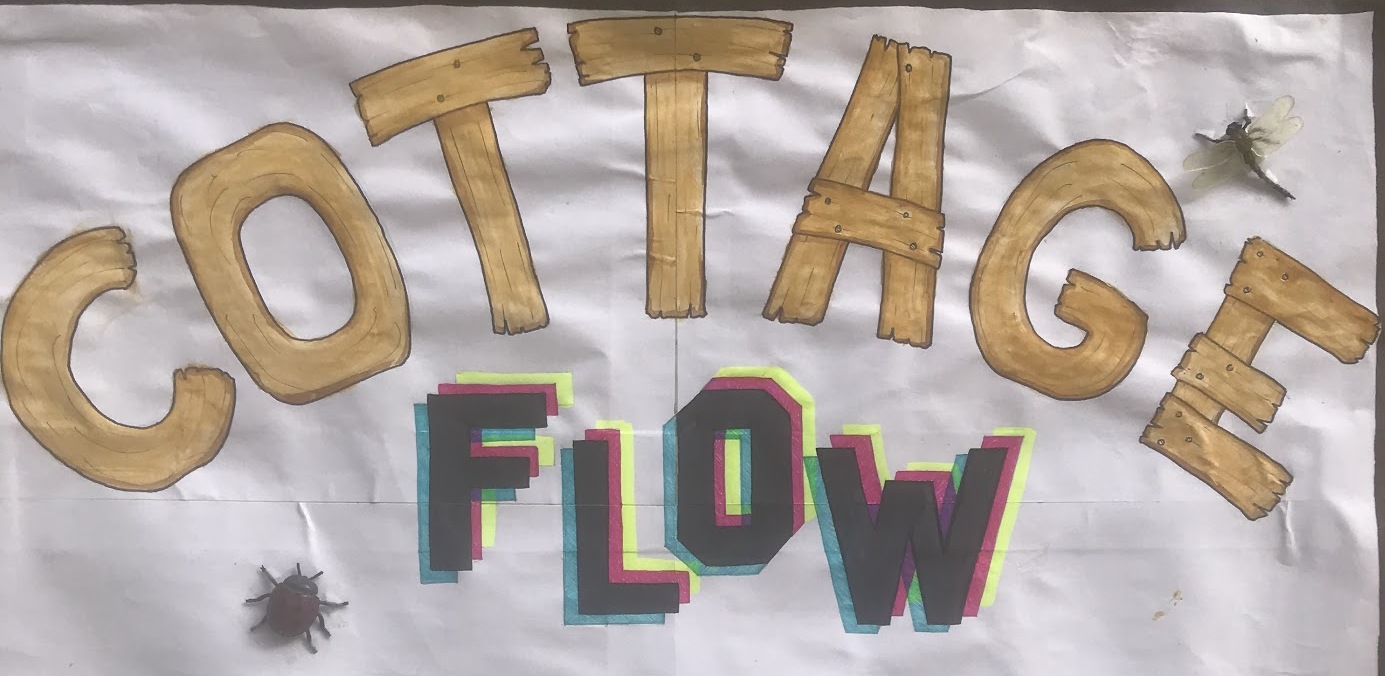 COTTAGE
FLOW